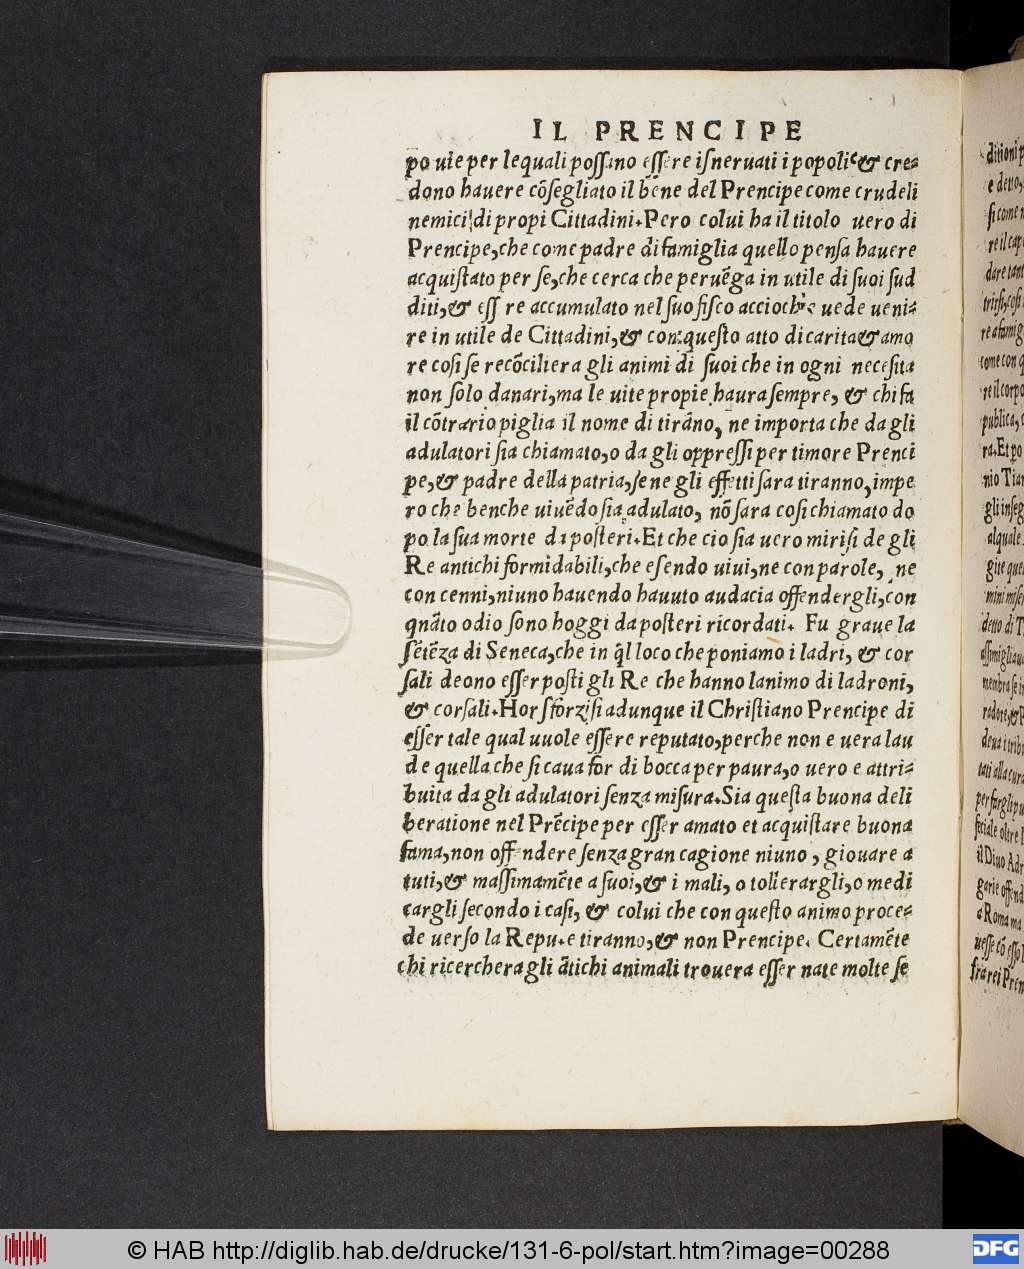 IL PRENCIPE
po uie per lequali poſſano eſſere iſneruati i popoli & cre-
dono hauere cõſegliato il bene del Prencipe come crudeli
nemici di propi Cittadini. Pero colui ha il titolo uero di
Prencipe, che come padre di famiglia quello penſa hauere
acquiſtato per ſe, che cerca che peruẽga in utile di ſuoi ſud
diti, & eſſ re accumulato nel ſuo fiſco accioche uede ueni-
re in utile de Cittadini, & con queſto atto di carita & amo
re coſi ſe recõciliera gli animi di ſuoi che in ogni neceſita
non ſolo danari, ma le uite propie haura ſempre, & chi fa
il cõtrario piglia il nome di tirãno, ne importa che da gli
adulatori ſia chiamato, o da gli oppreſſi per timore Prenci
pe, & padre della patria, ſe ne gli effetti ſara tiranno, impe
ro che benche uiuẽdo ſia adulato, nõ ſara coſi chiamato do
po la ſua morte di poſteri. Et che cio ſia uero miriſi de gli
Re antichi formidabili, che eſendo uiui, ne con parole, ne
con cenni, niuno hauendo hauuto audacia offendergli, con
qnãto odio ſono hoggi da poſteri ricordati. Fu graue la
ſẽtẽza di Seneca, che in q̃l loco che poniamo i ladri, & cor
ſali deono eſſer poſti gli Re che hanno lanimo di ladroni,
& corſali. Hor ſforziſi adunque il Chriſtiano Prencipe di
eſſer tale qual uuole eſſere reputato, perche non e uera lau
de quella che ſi caua for di bocca per paura, o uero e attri-
buita da gli adulatori ſenza miſura. Sia queſta buona deli
beratione nel Prẽcipe per eſſer amato et acquiſtare buona
fama, non offendere ſenza gran cagione niuno, giouare a
tuti, & maſſimamẽte a ſuoi, & i mali, o tollerargli, o medi
cargli ſecondo i caſi, & colui che con queſto animo proce-
de uerſo la Repu. e tiranno, & non Prencipe. Certamẽte
chi ricerchera gli ãtichi animali trouera eſſer nate molte ſe
ditioni
e detto,
ſi come
re il
dare
re a
come con q
re il corpo
publica,
ra. Et po
nio
gli inſeg
al quale
gite que
mini miſer
detto di T
aſſimigliaua
membra ſe
deua i
per fargli
ſeciale oltre
il Diuo Adr
garie offend
a Roma ma
ueſſe cõ eſſo
Pren
© HAB http://diglib.hab.de/drucke/131-6-pol/start.htm?image=00288
DFG